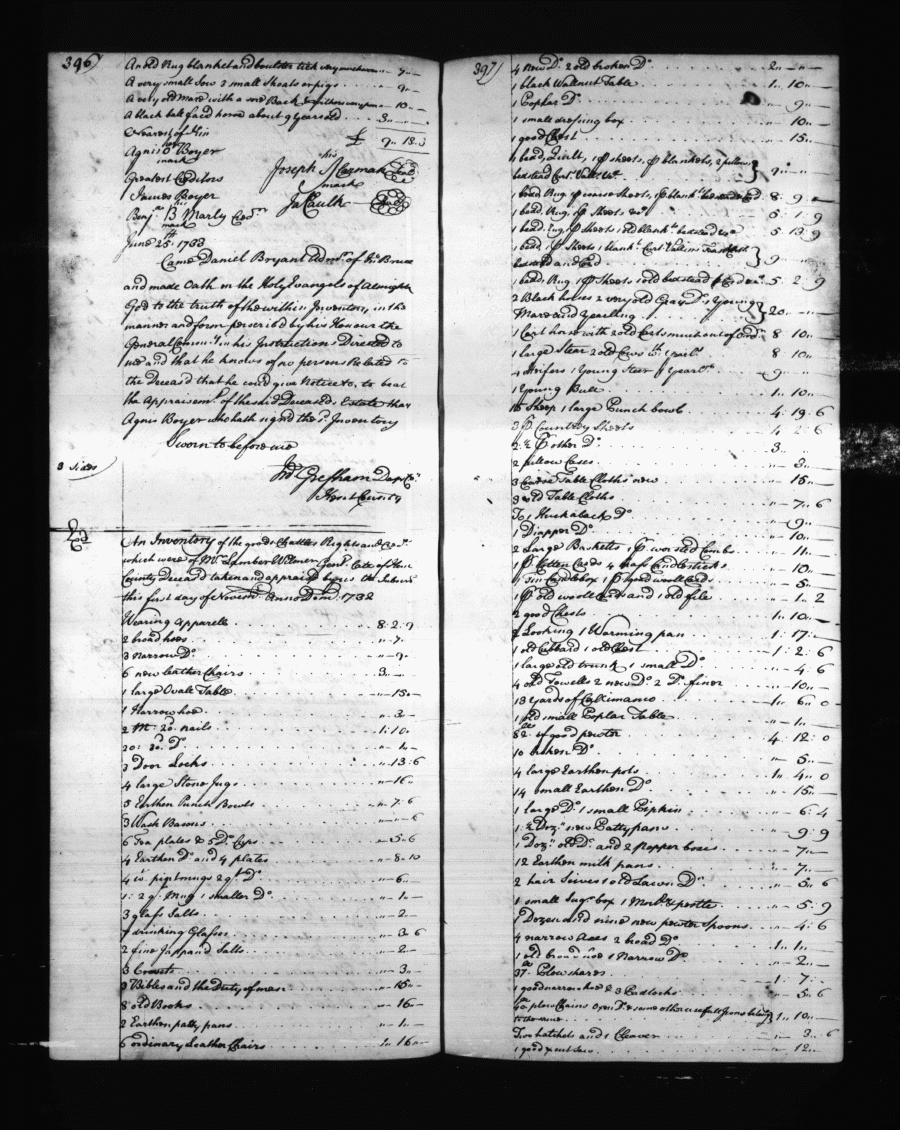 396)
An old Rug blanket and boulster tick very much worn " 7 "
A very small Sow 3 small Shoats or pigs " 9 "
A very old Mare with a sore Back " 10 "
A black bald faced horse about 9 years old 3 " "
£ 9 " 18 "
Nearest of Kin
Agnis Boyer
her mark
Greatest Creditors
James Boyer
Benj. B Marly Cred.
his mark
Joseph Cazmark Seal
his mark
Ja Caulk Seal
June 25th 1733
Came Daniel Bryant Adm.r of Bruce
and made Oath on the Holy Evangels of Almighty
God to the truth of the within Inventory, in the
manner and form prescrib'd by his Honour the
General Comm.y in his Instructions Directed to
me and that he knows of no persons Related to
the Deceas'd that he could give Notice to, to be at
the Appraisem.t of the said Deceased Estate than
Agnis Boyer who hath signd the s.d Inventory
3 sides)
Sworn to before me
Gresham Dep Co.y
Kent County
Ex.d
An Inventory of the goods Chattles Rights and Cred.ts
which were of M.r Lambert Wilmer Gen.t late of Kent
County Deceas'd taken and appraised by us the Subscr
this first day of Novem.r Anno Dom. 1732
Wearing Apparell 8 : 2 : 9
2 broad hoes " 7 "
3 Narrow D.o " 9 "
6 new leather Chairs 3 " "
1 large Ovall Table " 15 "
1 Narrow hoe " 3 "
2 M: 20.d nails 1 : 10 "
20: 30.d D.o " 1 "
3 Door Locks " 13 : 6
4 large Stone Jugs " 16 "
5 Earthen Punch Bowls " 7 : 6
3 Wash Basons " " 6
6 Tea plates & 5 D.o Cups " 5 : 6
4 Earthen D.o and 4 plates " 8 : 10
4 w. pint mugs 2 q.t D.o " 6 "
1 : 2 q.t Mug 1 smaller D.o " 1 "
3 glass Salts " 2 "
7 drinking Glasses " 3 : 6
2 fine Jappand Salts " 2 "
3 Crewets " 3 "
3 Bibles and the Duty of man " 15 "
8 old Books " 16 "
2 Earthen patty pans " 1 "
6 ordinary Leather Chairs 1 " 16 "
397)
4 New D.o 2 old broken D.o 2 " "
1 black Wallnut Table 1 " 10 "
1 Poplar D.o " 9 "
1 small dressing box " 10 "
1 good Chest " 15 "
1 bead, Quilt, 1 p.r sheets, p.r blankets, 2 pillows
bedstead Cort. Vall. &c. 9 " "
1 bead Rug p.r coarse Sheets, 1 p.r blank.ts bedstead & Cord 8 " 9 "
1 bead, Rug, p.r Sheets &c 5 " 1 " 9
1 bead, Rug, p.r Sheets 1 old blank.t bedstead &c 5 " 13 " 9
1 bead, p.r Sheets 1 blank.t Curt Vallins
bedstead and Cord 9 " "
1 bead, Rug, 1 p.r Sheets 1 old bedstead & Cord &c 5 " 2 " 9
2 Black horses 2 very old Gray D.o 1 Young
Mare and Yearling 20 " "
1 Cart horse with 2 old Carts much out of Order 8 " 10 "
1 large Steer 2 old Cows w.th 8 " 10 "
4 Heifers 1 Young Steer p.r Yearl. 9 " "
1 Young Bull 1 " 10 "
15 Sheep 1 large Punch bowl 4 " 19 " 6
3 p.r Country Sheets 4 " 2 " 6
2 : ½ p.r other D.o 3 "
2 pillow Cases " 3 "
3 Coarse Table Cloths new " 15 "
3 old Table Cloths " 7 " 6
To 1 Huckaback D.o " 9 "
1 Diapper D.o " 10 "
2 Large Basketts 1 p.r worsted Combs " 11 "
1 p.r Cotton Cards 4 brass Candlesticks " 10 "
1 tin Candlebox 1 p.r good wooll Cards " 5 "
1 p.r old wooll Cards and 1 old file " 1 " 2
2 good Chests 1 " 10 "
Looking 1 Warming pan 1 : 17 "
1 old Cubbard 1 old Chest 1 : 2 : 6
1 large old trunk, 1 small D.o " 4 : 6
4 old Towells 2 new D.o 2 D.o finer " 10 "
13 Yards of Callimanco 1 " 6 " 0
1 old small Poplar Table " 1 "
82 of good pewter 4 : 12 : 0
10 broken D.o " 5 "
4 large Earthen pots 1 " 4 " 0
14 Small Earthen D.o " 15 "
1 large D.o 1 small Pipkin " 6 : 4
1 : ½ Doz.n new Patty pans " 9 : 9
1 Doz.n old D.o and 2 Pepper boxes " 7 "
12 Earthen milk pans " 7 "
2 hair Seives 1 old Lawn D.o " 5 " 6
1 small Sug.r box 1 Mort. & pestle " 5 : 9
1 Dozen and nine new pewter Spoons " 4 : 6
4 narrow Axes 2 broad D.o 1 " 1 "
1 old broad hoe 1 Narrow D.o " 2 "
37 Plow shares 1 : 7 "
1 good narrow hoe & 3 Padlocks " 5 : 6
plow Chains Oxen D.o & some other usefull Irons belong
to the same 1 " 10 "
Two hatchets and 1 Cleaver " 3 " 6
1 good x cut Saw " 12 "